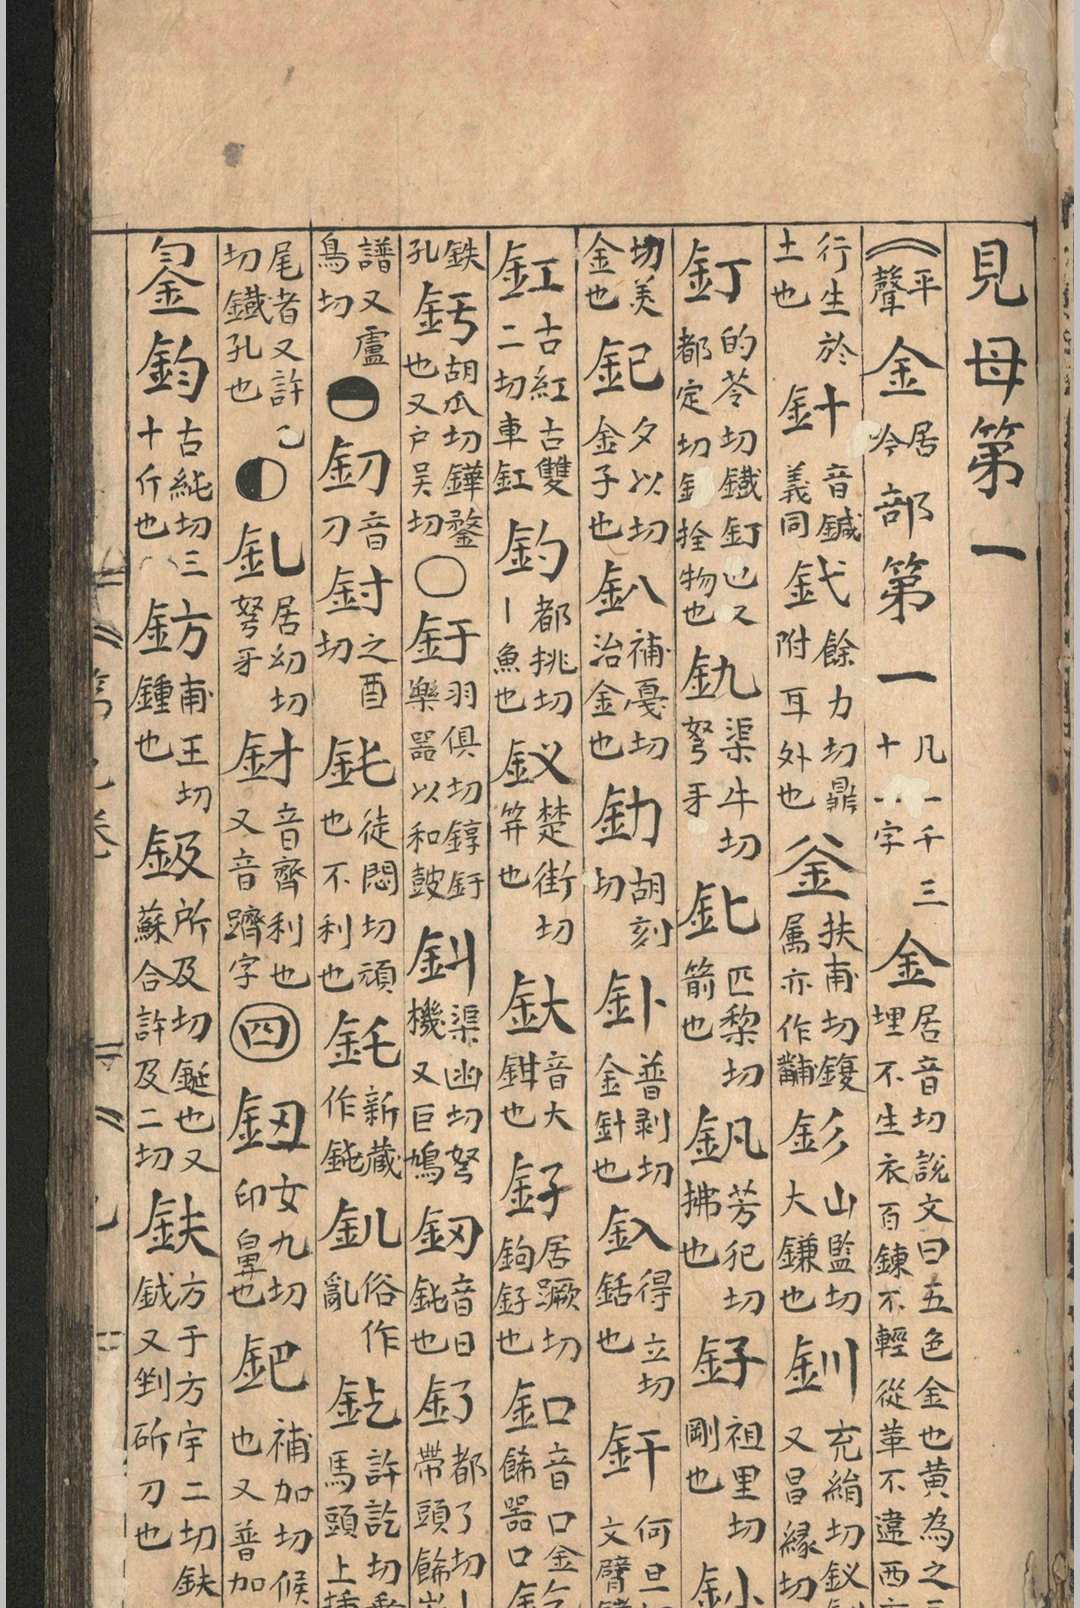 見母第一
平聲金居吟部第一凡一千三十一字金居音切說文曰五色金也黃為之
埋不生衣百鍊不輕從革不違西
行生於土也釒十音鍼義同釴餘力切鼎附耳外也釜扶甫切鍑屬亦作鬴釤山監切大鎌也釧充絹切釵又昌緣切
釘的苓切鐵釘也又都定切釘拴物也釚渠牛切弩牙鈚匹黎切箭也釩芳犯切拂也釨祖里切剛也
切美金也釲夕以切金子也釟補戛切治金也釛胡刻切釙普剥切金針也釞得立切銛也釬何旦
釭古紅古雙二切車釭釣都挑切丨魚也釵楚街切笄也釱音大鉗也釨居蹶切鉤釨也釦音口金飾器口
鉄孔釫胡瓜切鏵鍪也又戶吴切〇釪羽俱切錞釪樂器以和鼓釻渠幽切弩機又巨鳩釰音日鈍也釕都了切帶頭飾
譜又盧鳥切釖音刀鈄之酉切釶徒悶切頑也不利也釷新藏作鈍釠俗作亂釳許訖切馬頭上
尾者又許乞切鐵孔也釓居幼切弩牙釮音齊利也又音躋字四鈕女九切印鼻也鈀補加切候也又普加
鈞古純切三十斤也鈁甫王切鍾也鈒所及切鋋也又蘇合許及二切鈇方于方宇二切鈇鉞又剉斫刀也